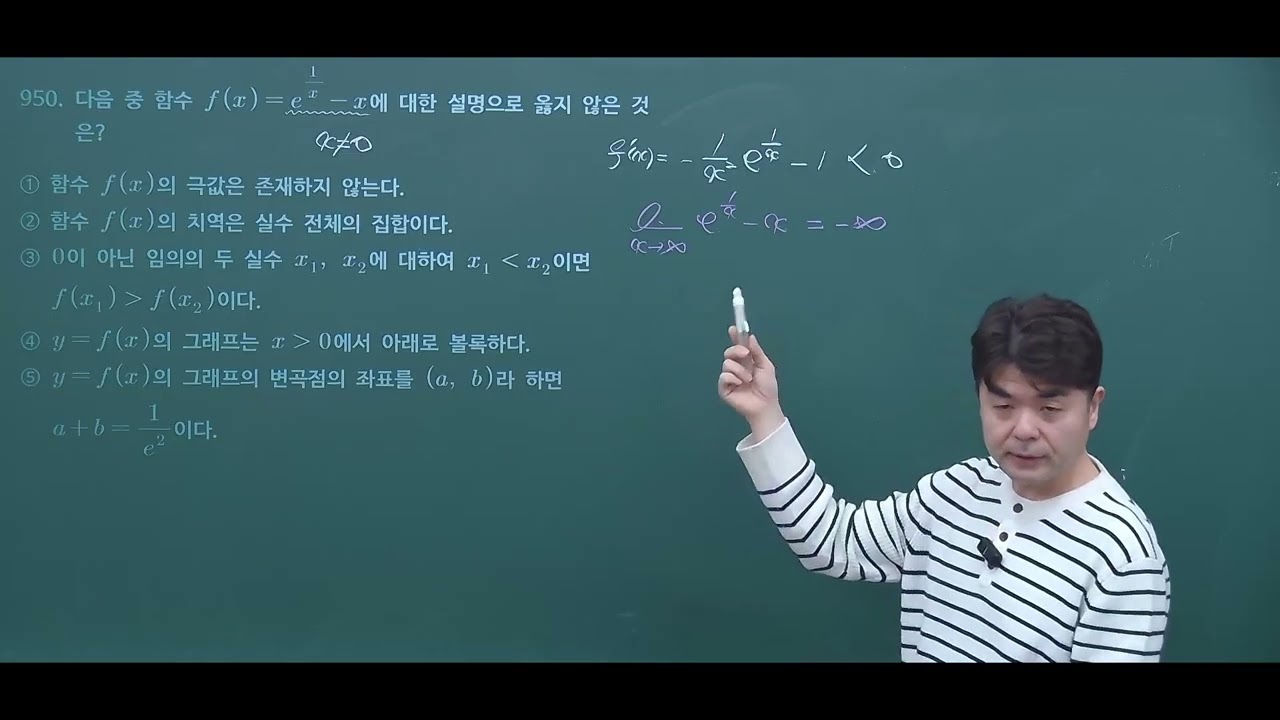 950. 다음 중 함수 f(x)=e^{\frac{1}{x}}-x에 대한 설명으로 옳지 않은 것
은?
x≠0
① 함수 f(x)의 극값은 존재하지 않는다.
② 함수 f(x)의 치역은 실수 전체의 집합이다.
③ 0이 아닌 임의의 두 실수 x₁, x₂에 대하여 x₁ < x₂이면
f(x₁) > f(x₂)이다.
④ y=f(x)의 그래프는 x>0에서 아래로 볼록하다.
⑤ y=f(x)의 그래프의 변곡점의 좌표를 (a, b)라 하면
a+b=\frac{1}{e^2}이다.
f'(x)= -\frac{1}{x^2}e^{\frac{1}{x}}-1 < 0
\lim_{x→∞} e^{\frac{1}{x}}-x = -∞